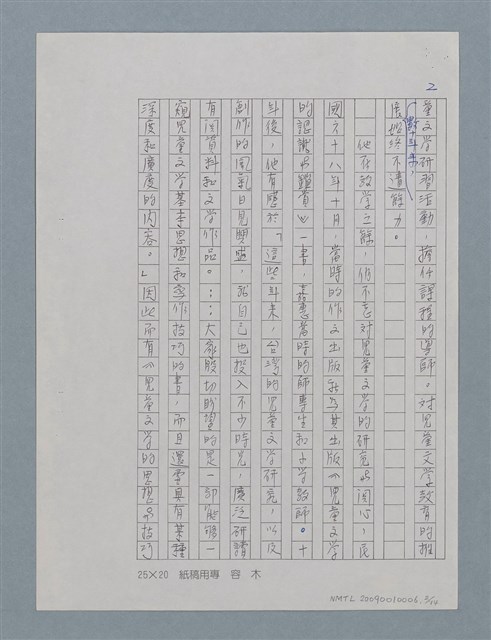 2
童文學研習活動，擔任課程的導師。對兒童文學教育的推
數十年來，
展始終不遺餘力。
他在教學之餘，仍不忘對兒童文學的研究與關心，民
國六十八年十月，當時的作文出版社為其出版《兒童文學
的認識與鑑賞》一書，嘉惠當時的師專生和小學教師。十
年後，他有感於「這些年來，台灣的兒童文學研究，以及
創作的風氣日見興盛，我自己也投入不少時光，廣泛研讀
有關資料和文學作品。……大家殷切盼望的是一部能夠一
窺兒童文學基本思想和寫作技巧的書，而且還要具有某種
深度和廣度的內容。」因此而有《兒童文學的思想與技巧
25×20 紙稿用專 容木
NMTL 20090010006, 2/14